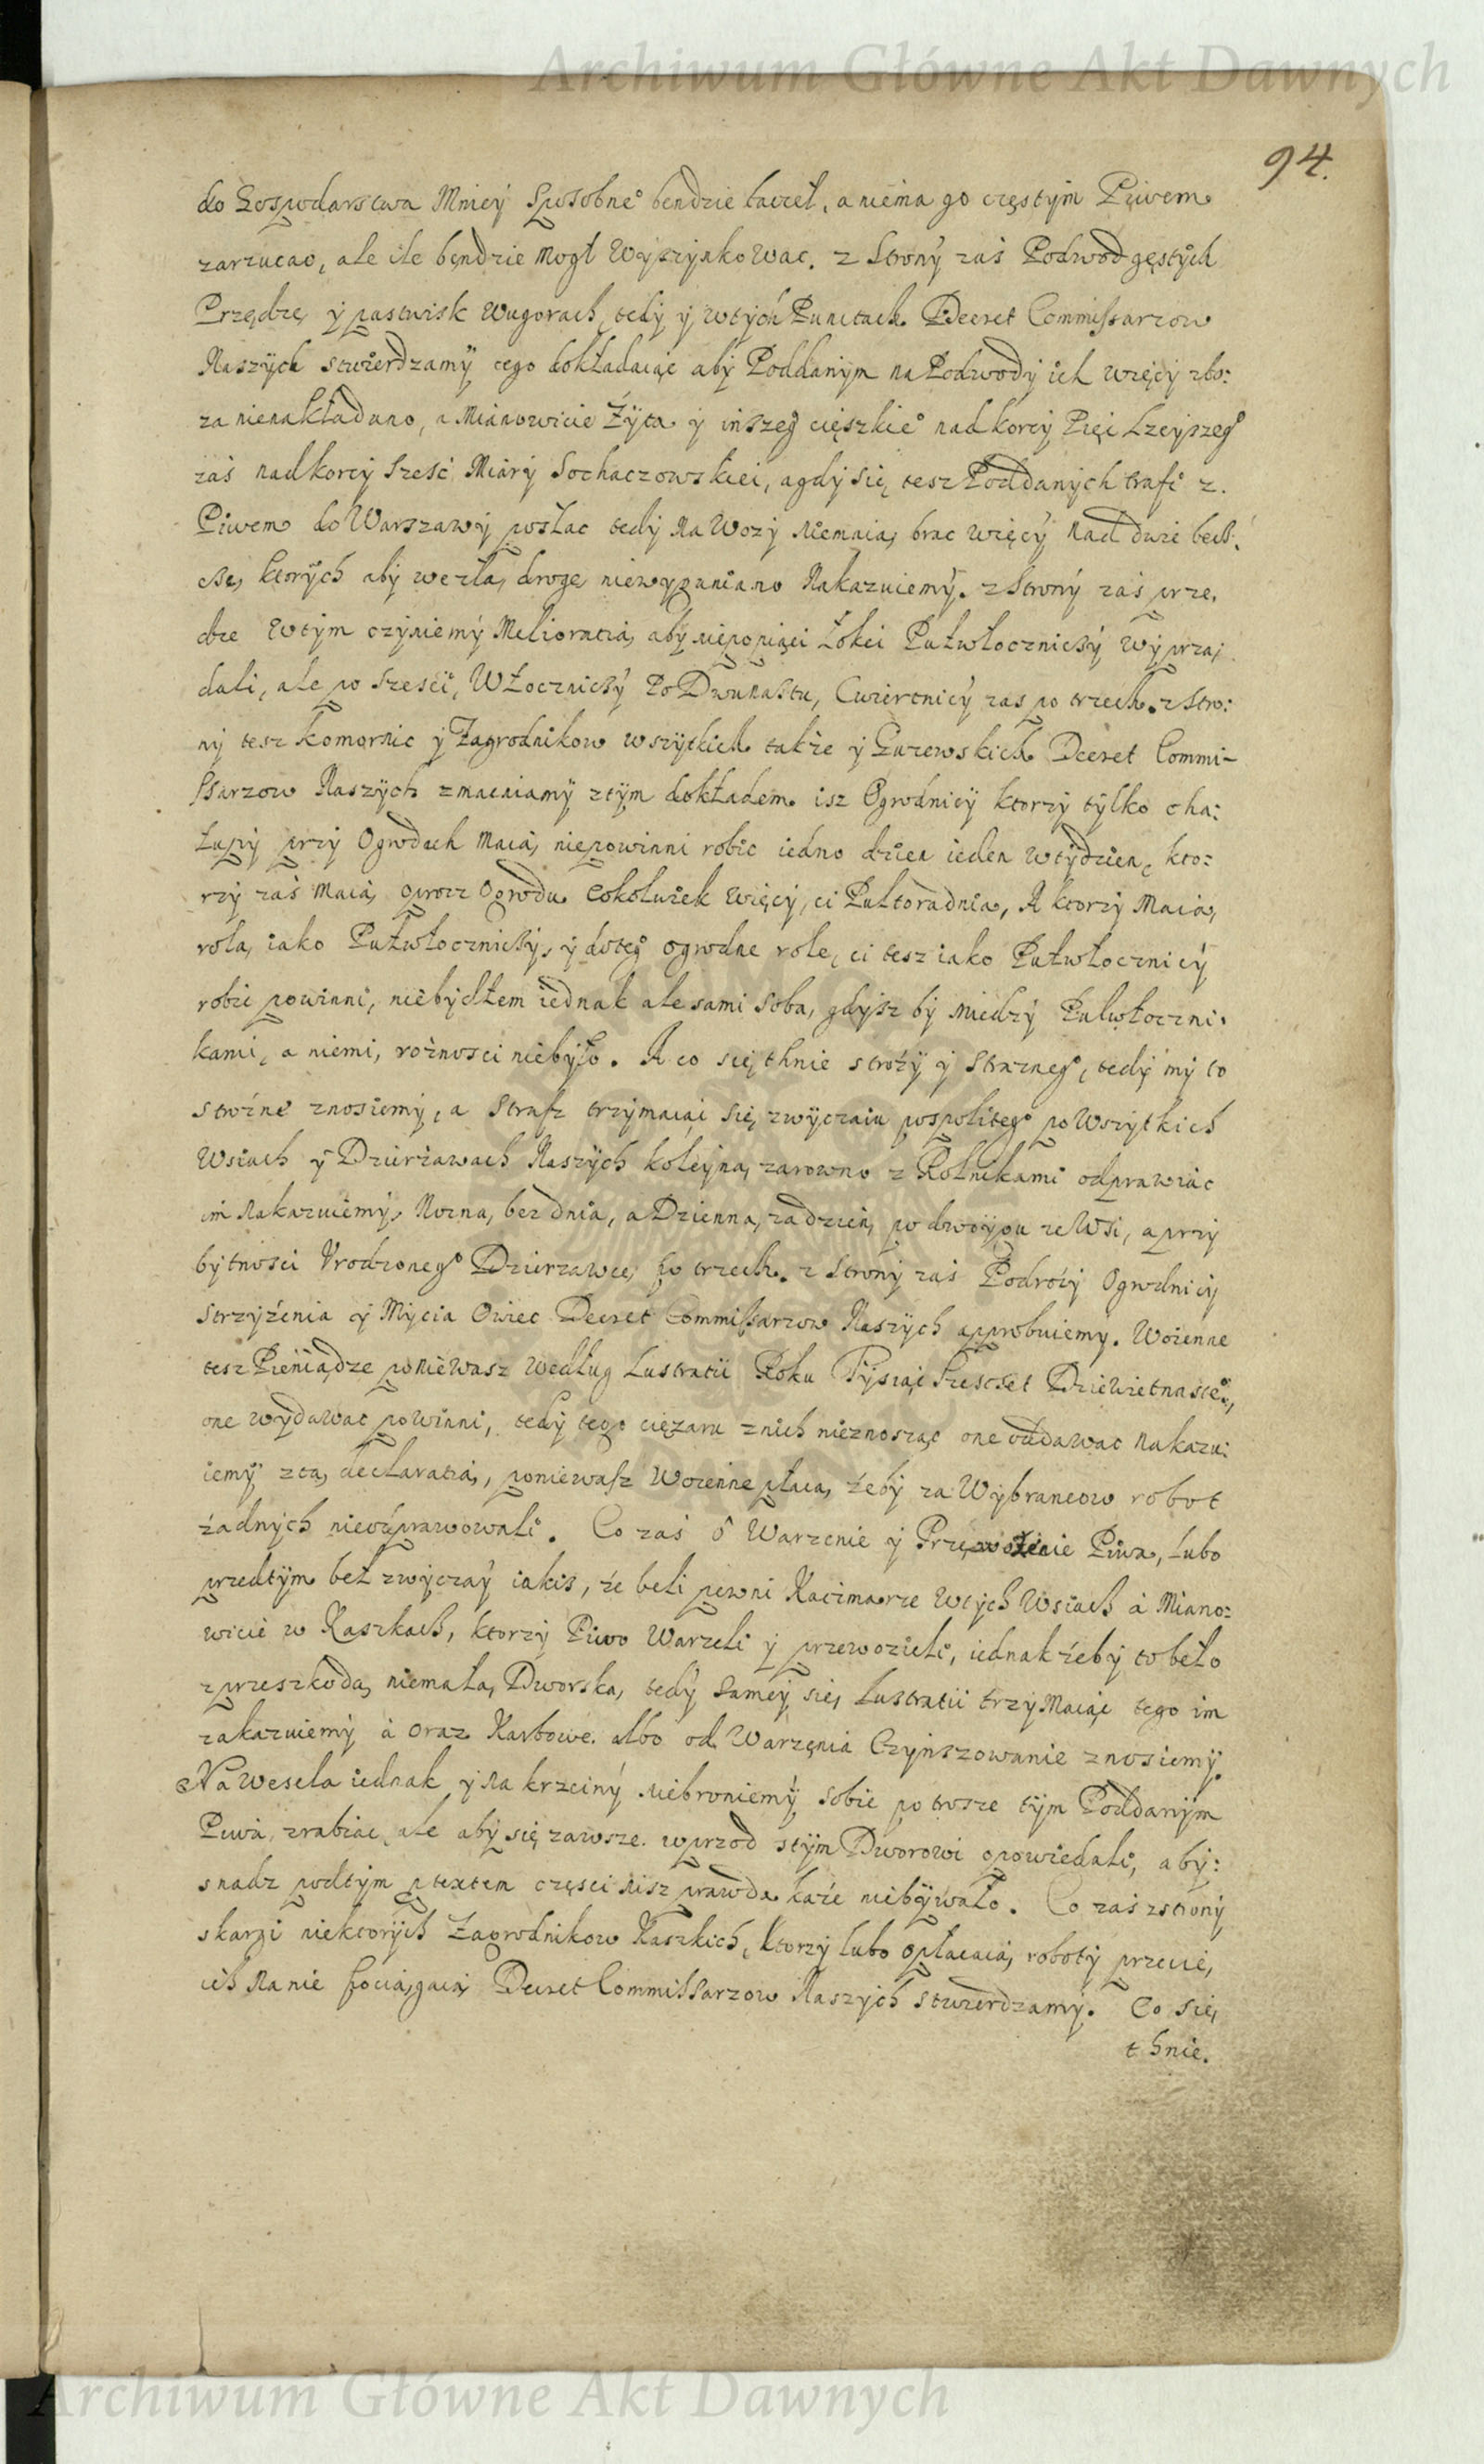 Archiwum Główne Akt Dawnych
94.
do Gospodarstwa Mnieÿ Sposobneº bendzie baczeł, a niema go częstÿm Piwem
zarzucac, ale ile bęndzie Mogł Wÿszÿnkowac. z Stronÿ zaś Podwod gęstÿch
Przędze, ÿ pastwisk Wugorach, tedÿ ÿ wtÿch Punctach Decret Commissarzow
Naszÿch stwierdzamÿ tego dokładaiąc abÿ Poddanÿm na Podwodÿ ich więcÿ zbo:
za nienakładano, a Mianowicie Żÿta ÿ inszegº cięszkieº nad korcÿ Pięć Lzeÿszegº
zaś nad korcÿ Szesć Miarÿ Sochaczowskiei, a gdÿ się tesz Poddanÿch trafi z
Piwem do Warszawÿ posłac tedÿ Na Wozÿ Niemaią brac więcÿ Nad dwie becz:
cze, ktorÿch abÿ wezłą drogę niewÿganiano Nakazuiemÿ. z Stronÿ zaś prze,
dze Wtÿm czÿniemÿ Melioratią, abÿ niepopięci Łokci Pułwłocznicÿ Wÿprzą:
dali, ale po Szesci, Włocznicÿ Po Dwunastu, Cwiertnicÿ zas po trzech. z Stro:
nÿ tesz komornic ÿ Zagrodnikow wszÿtkich także ÿ Gurewskich Decret Commi-
ssarzow Naszÿch zmacniamÿ ztÿm dokładem isz Ogrodnicÿ ktorzÿ tÿlko cha:
łupÿ przÿ Ogrodach Maią, niepowinni robic iedno dzien ieden wtÿdzien, kto:
rzÿ zaś Maią oprocz Ogrodu Cokolwiek więcÿ, ci Pułtoradnia, A ktorzÿ Maią,
rolą, iako Pułwłocznicÿ, ÿ dotegº ogrodne role, ci tesz iako Pułwłocznicÿ
robic powinni, niebÿdłem iednak ale sami Sobą, gdÿsz bÿ Miedzÿ Pułwłoczni:
kami, a niemi, rożnosci niebÿło. A co się thnie strożÿ ÿ Strażnegº, tedÿ mÿ to
strożne znosiemÿ, a Straż trzÿmaiąc Się zwÿczaiu pospolitegº po Wszÿtkich
Wsiach ÿ Dzierżawach Naszÿch koleÿną, zarowno z Rolnikami odprawiac
im Nakazuiemÿ, Nocną, bez dnia, a Dzienną, za dzien, po dwoÿgu ze Wsi, a przÿ
bÿtnosci Vrodzonegº Dzierzawcę, po trzech. z Stronÿ zaś Podrożÿ Ogrodnicÿ
Strzÿżenia ÿ Mÿcia Owiec Decret Commissarzow Naszÿch approbuiemÿ. Woienne
tesz Pieniądze poniewasz według Lustratii Roku Tÿsiąc Szescset Dziewietnastegº,
one wÿdawac powinni, tedÿ tegº cięzaru znich nieznosząc one oddawac Nakazu:
iemÿ ztą, declaratią, poniewasz Woienne płacą, żebÿ za Wÿbrancow robot
żadnÿch nieodprawowali. Co zaś o Warzenie ÿ Przewożenie Piwa, Lubo
przedtÿm beł zwÿczaÿ iakis, że beli pewni Kaczmarze Wtÿch Wsiach á Miano:
wicie w Kaszkach, ktorzÿ Piwo Warzeli ÿ przewozieli, iednak żebÿ to beło
z przeszkodą, niemałą, Dworską, tedÿ Sameÿ się, Lustratii trzÿmaiąc tego im
zakazuiemÿ á oraz Karbowe albo od Warzęnia Czÿnszowanie znosiemÿ.
Na Wesela iednak ÿ na krzcinÿ niebroniemÿ Sobie po trosze tÿm Poddanÿm
Piwa zrabiac, ale abÿ się zawsze wprzod stÿm Dworowi opowiedali, abÿ:
snadz podtÿm ptextem częsci nisz prawda każe niebÿwało. Co zaś zstronÿ
skargi niektorÿch Zagrodnikow Kaszkich, ktorzÿ lubo opłacaią, robotÿ przecie,
ich na nie Pociągaią, Decret Commissarzow Naszÿch stwierdzamÿ. Co Się,
thnie.
Archiwum Główne Akt Dawnych